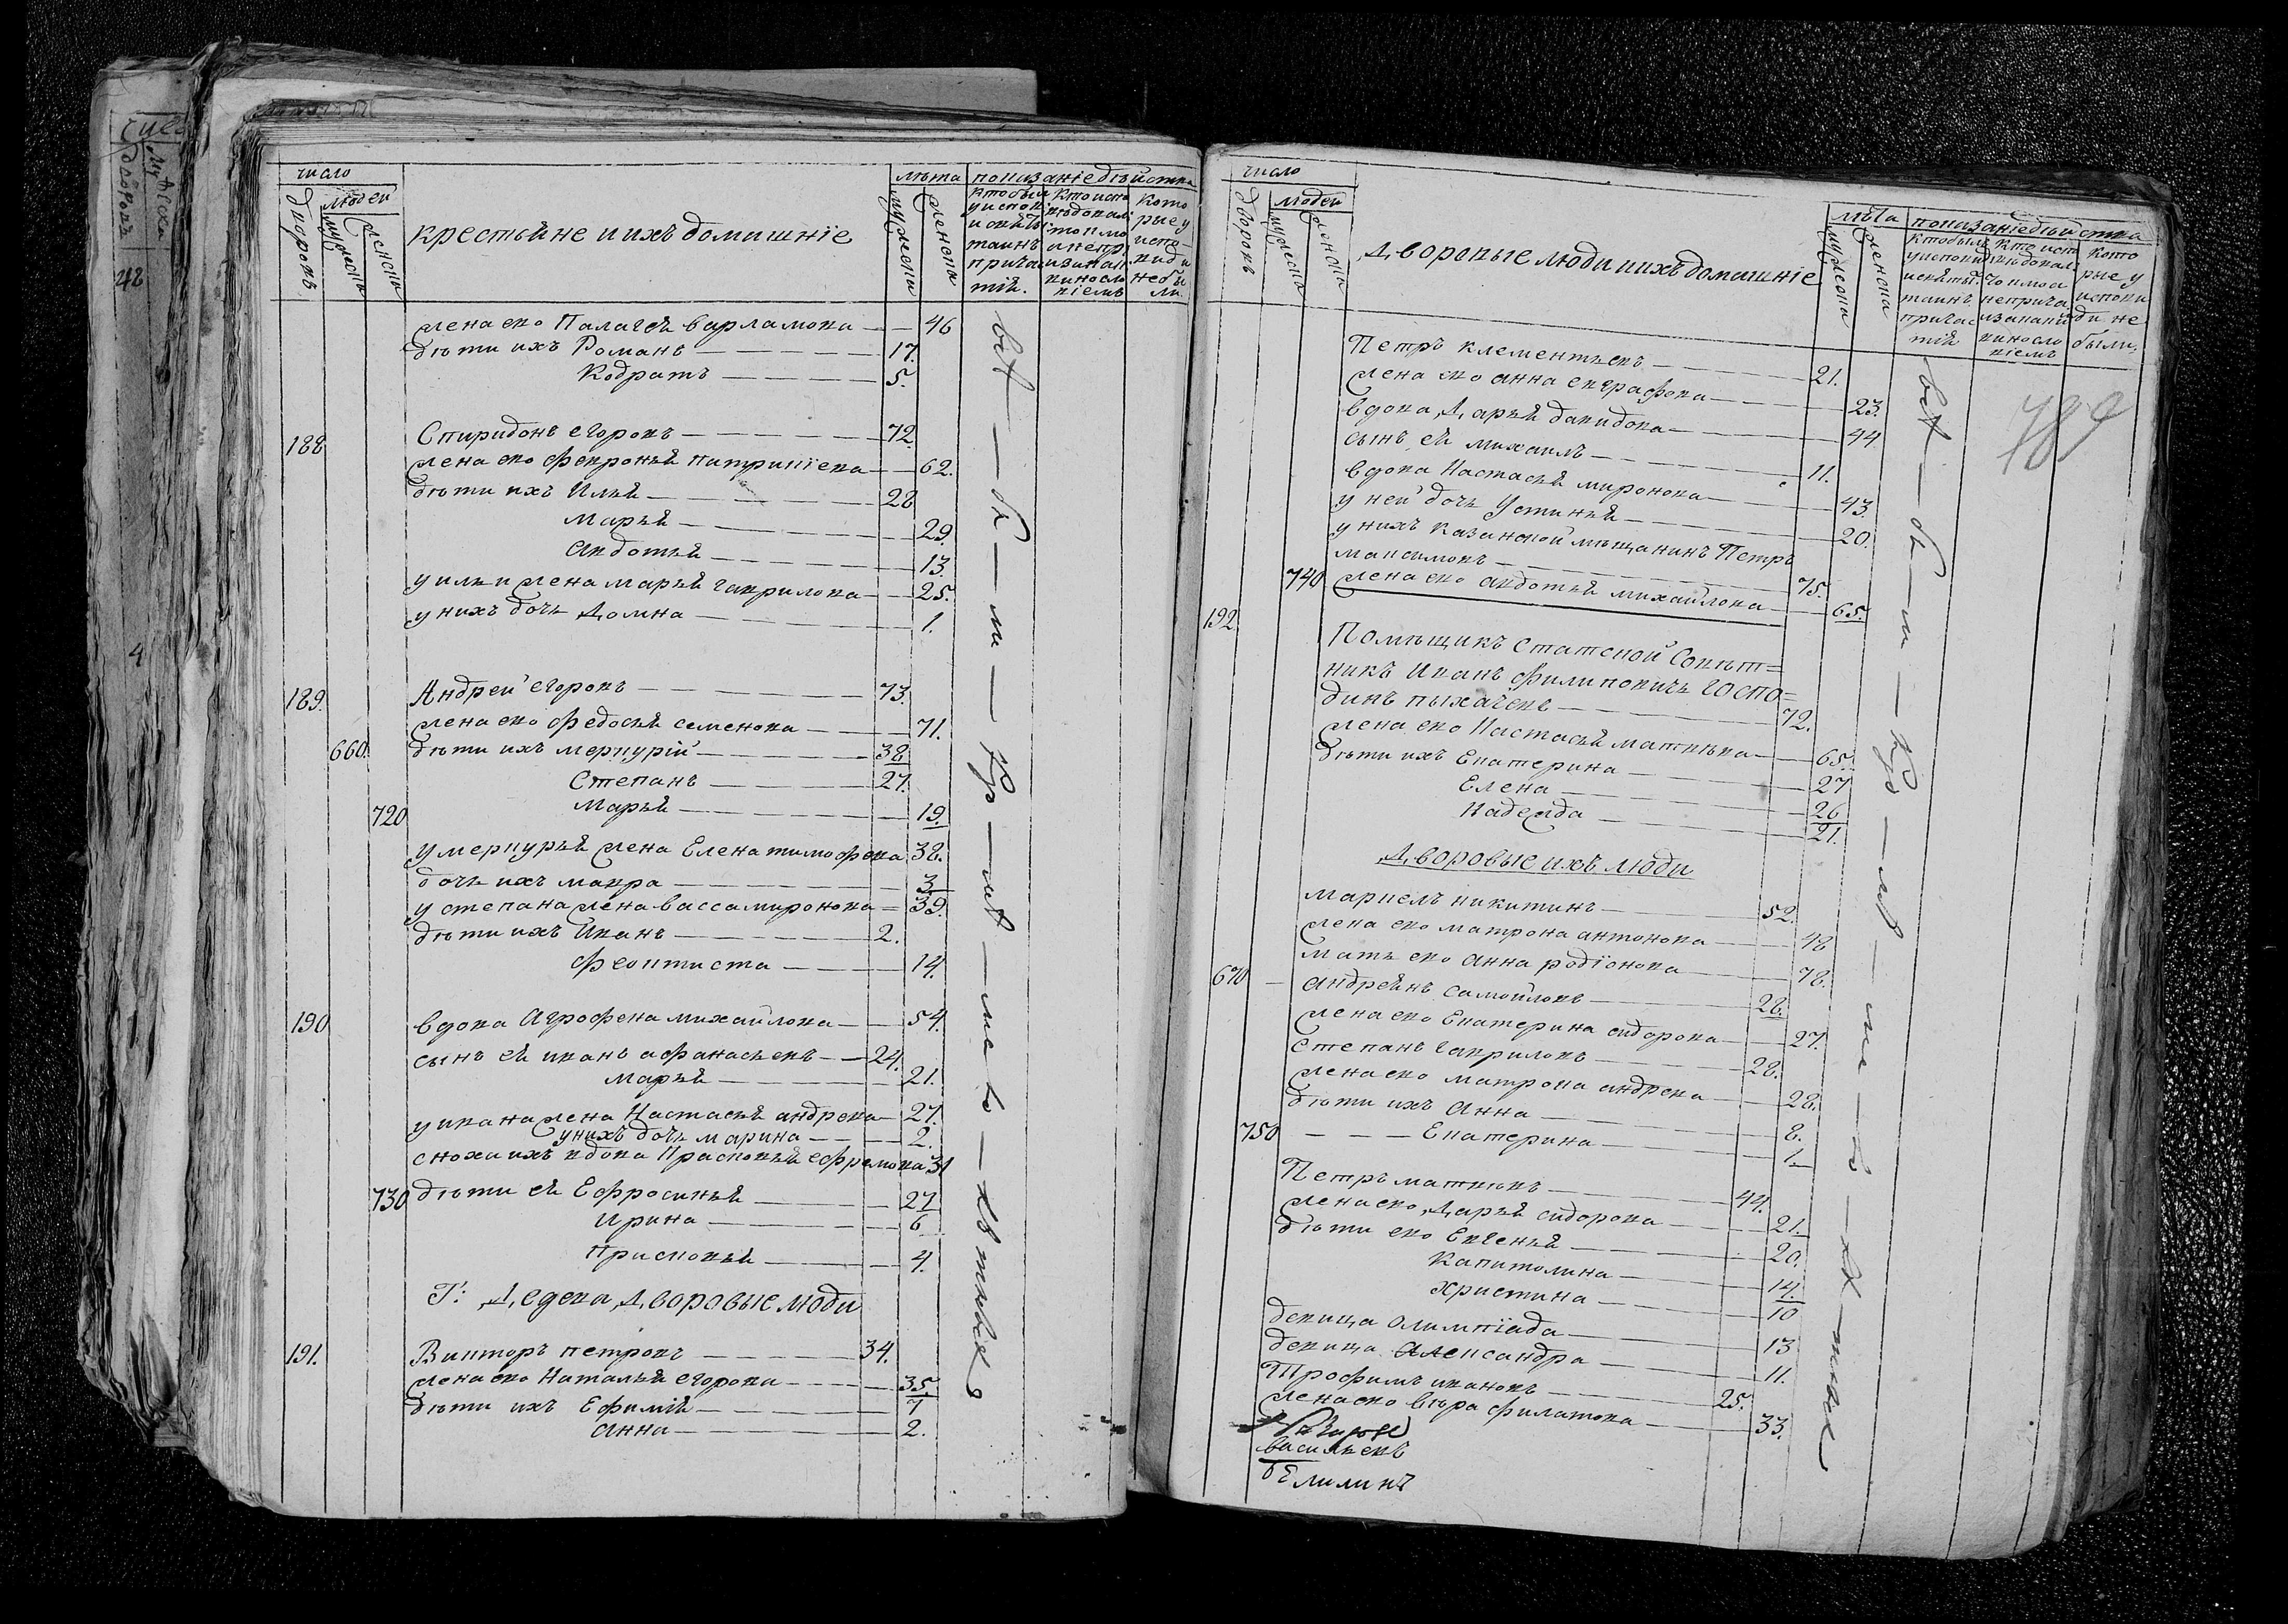 число
дворовъ
людей
мужеска
женска
крестьяне и ихъ домашнїе
лѣта
мужеска
женска
показанїе дѣйства
жена ево Палагея варламова — 46
дѣти ихъ Романъ — 17.
Кодратъ — 5.
188 Спиридонъ егоровъ — 72
жена ево февронья патрикїева — 62.
дѣти ихъ Илья — 28
марья — 29.
авдотья — 13.
у ильи жена марья гаврилова — 25.
у нихъ дочь Домна — 1.
189. Андрей егоровъ — 73.
жена ево федосья семенова — 71.
660. дѣти ихъ меркурїй — 38
Степанъ — 27.
720 Марья — 19.
у меркурья жена Елена тимофева 38.
дочь ихъ мавра — 3
у степана жена васса миронова — 39.
дѣти ихъ Иванъ — 2.
феоктиста — 14.
190 вдова Агрофена михайлова — 54.
сынъ ей иванъ афанасьевъ — 24.
марья — 21.
у ивана жена Настасья андрева — 27.
у нихъ дочь марина — 2.
сноха ихъ вдова Прасковья ефремова 31
730 дѣти ей Ефросинья — 27
Ирина — 6
Прасковья — 4.
Г: Дедева Дворовые люди
191. Викторъ петровъ — 34.
жена ево Наталья егорова — 35.
дѣти ихъ Ефимїя — 7
анна — 2.
число
дворовъ
людей
мужеска
женска
Дворовые люди и ихъ домашнїе
лѣта
мужеска
женска
показанїе дѣйства
789
Петръ клементьевъ — 21.
жена ево анна евграфова — 23.
вдова Дарья давидова — 44.
сынъ ей михаилъ — 11.
вдова Настасья миронова — 43.
у ней дочь Устинья — 20.
у нихъ казанской мѣщанинъ Петръ
максимовъ — 75.
740 жена ево авдотья михайлова — 65.
192. Помѣщикъ Статской Совѣт=
никъ Иванъ филиповичь госпо=
динъ пыхачевъ — 72.
жена ево Настасья матвѣева — 65.
дѣти ихъ Екатерина — 27
Елена — 26
Надежда — 21.
Дворовые ихъ люди
маркелъ никитинъ — 52.
жена ево матрона антонова — 48
мать ево анна родїонова — 78.
670 — андреянъ самойловъ — 28.
жена ево Екатерина сидорова — 27.
Степанъ гавриловъ — 28.
жена ево матрона андрева — 28.
дѣти ихъ Анна — 8.
750 — — — Екатерина — 1.
Петръ матвѣевъ — 44.
жена ево Дарья сидорова — 21.
дѣти ево Евгенья — 20.
Капитолина — 14.
христина — 10
девица олимпїада — 13
девица Александра — 11.
Трофимъ ивановъ — 25.
жена ево вѣра филатова — 33.
васильевъ